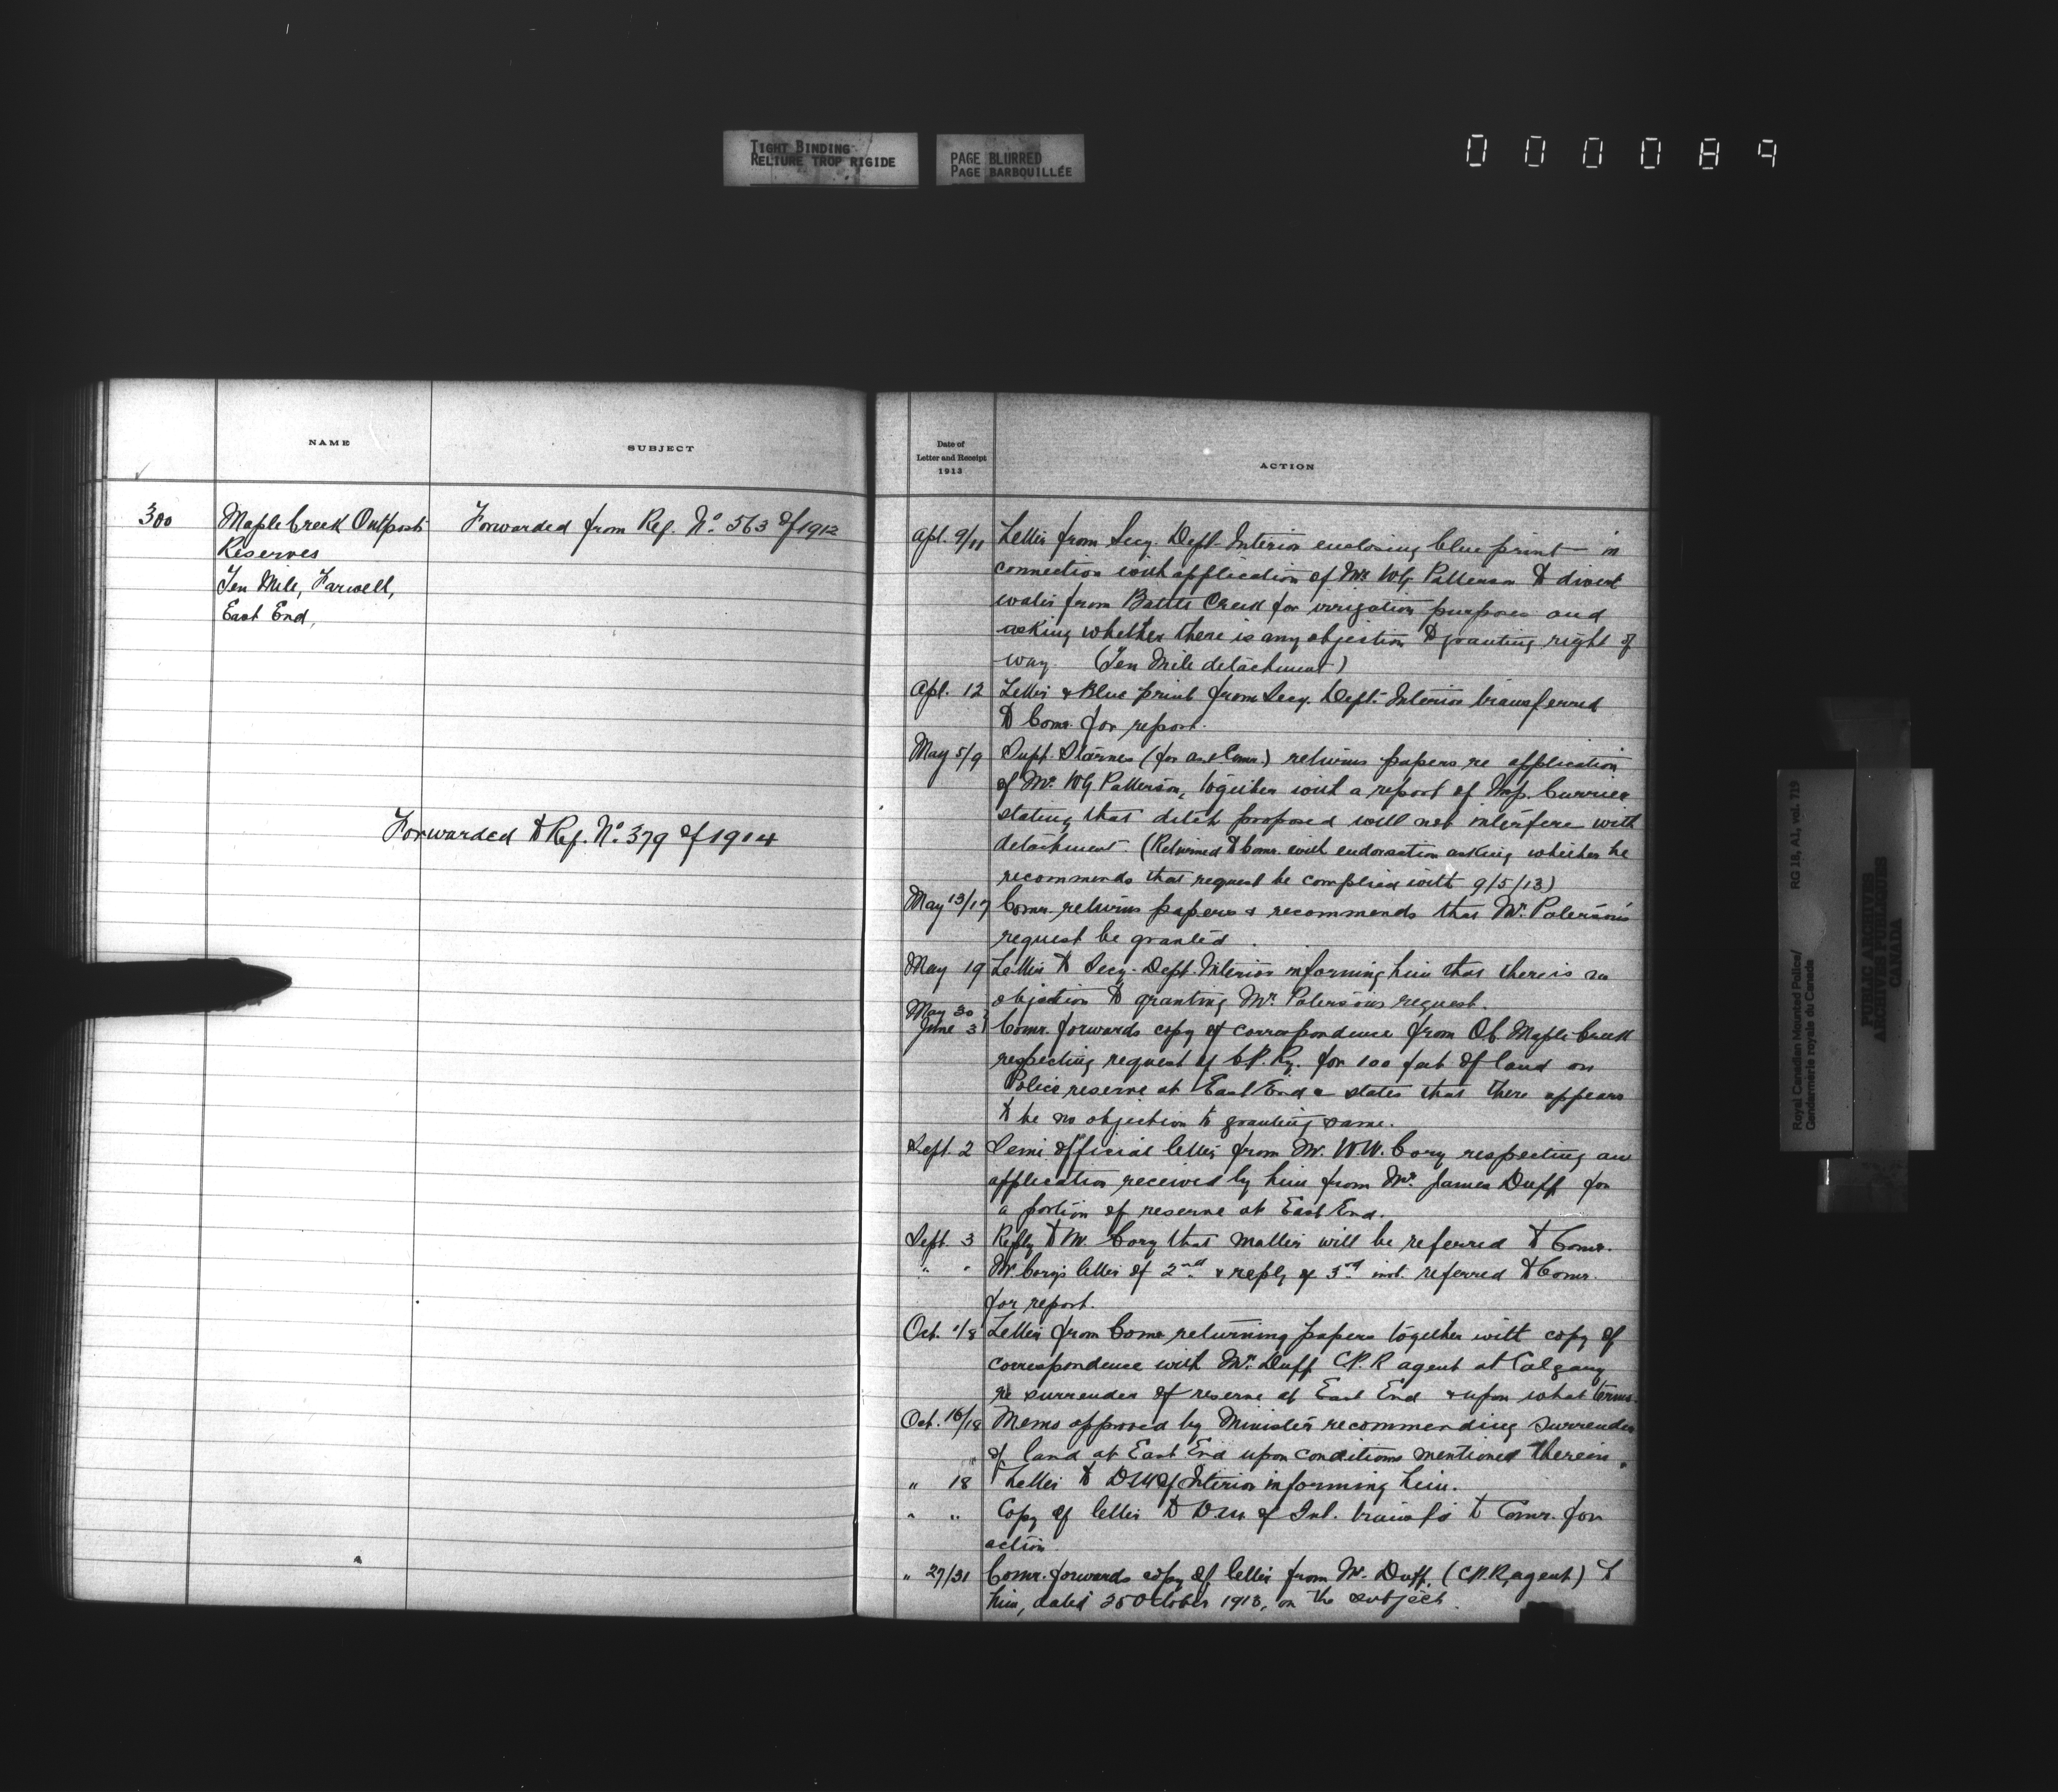 TIGHT BINDING
RELIURE TROP RIGIDE
PAGE BLURRED
PAGE BARBOUILLÉE
000089
NAME
SUBJECT
300
Maple Creek Outposts
Reserves
Ten Mile, Farwell,
East End,
Forwarded from Ref. No. 563 of 1912
Forwarded to Ref. No. 379 of 1914
Date of
Letter and Receipt
1913
ACTION
Apl. 9/11 Letter from Secy. Dept. Interior enclosing blue print in
connection with application of Mr. W.G. Patterson to divert
water from Battle Creek for irrigation purposes and
asking whether there is any objection to granting right of
way. (Ten Mile detachment)
Apl. 12 Letter & Blue print from Secy. Dept. Interior transferred
to Comr. for report.
May 5/9 Supt. Starnes (for asst Comr.) returns papers re application
of Mr. W.G. Patterson, together with a report of Insp. Currier
stating that ditch proposed will not interfere with
detachment. (Returned to Comr. with endorsation asking whether he
recommends that request be complied with 9/5/13)
May 13/17 Comr. returns papers & recommends that Mr. Paterson's
request be granted.
May 19 Letter to Secy. Dept. Interior informing him that there is no
objection to granting Mr. Paterson's request.
May 30
June 3 Comr. forwards copy of correspondence from O.C. Maple Creek
respecting request of C.P. Ry. for 100 feet of land on
Police reserve at East End & states that there appears
to be no objection to granting same.
Sept. 2 Semi official letter from Mr. W.W. Cory respecting an
application received by him from Mr. James Duff for
a portion of reserve at East End.
Sept. 3 Reply to Mr. Cory that matter will be referred to Comr.
" " Mr. Cory's letter of 2nd & reply of 3rd inst. referred to Comr.
for report.
Oct. 1/8 Letter from Comr. returning papers together with copy of
correspondence with Mr. Duff C.P.R agent at Calgary
re surrender of reserve at East End & upon what terms.
Oct. 16/18 Memo approved by Minister recommending surrender
of land at East End upon conditions mentioned therein.
" 18 Letter to D.M. of Interior informing him.
" " Copy of letter to D.M. of Int. transf'd to Comr. for
action
" 27/31 Comr. forwards copy of letter from Mr. Duff, (C.P.R. agent) to
him, dated 25 October 1913, on the subject.
Royal Canadian Mounted Police/
Gendarmerie royale du Canada
RG 18, A1, vol. 719
PUBLIC ARCHIVES
ARCHIVES PUBLIQUES
CANADA